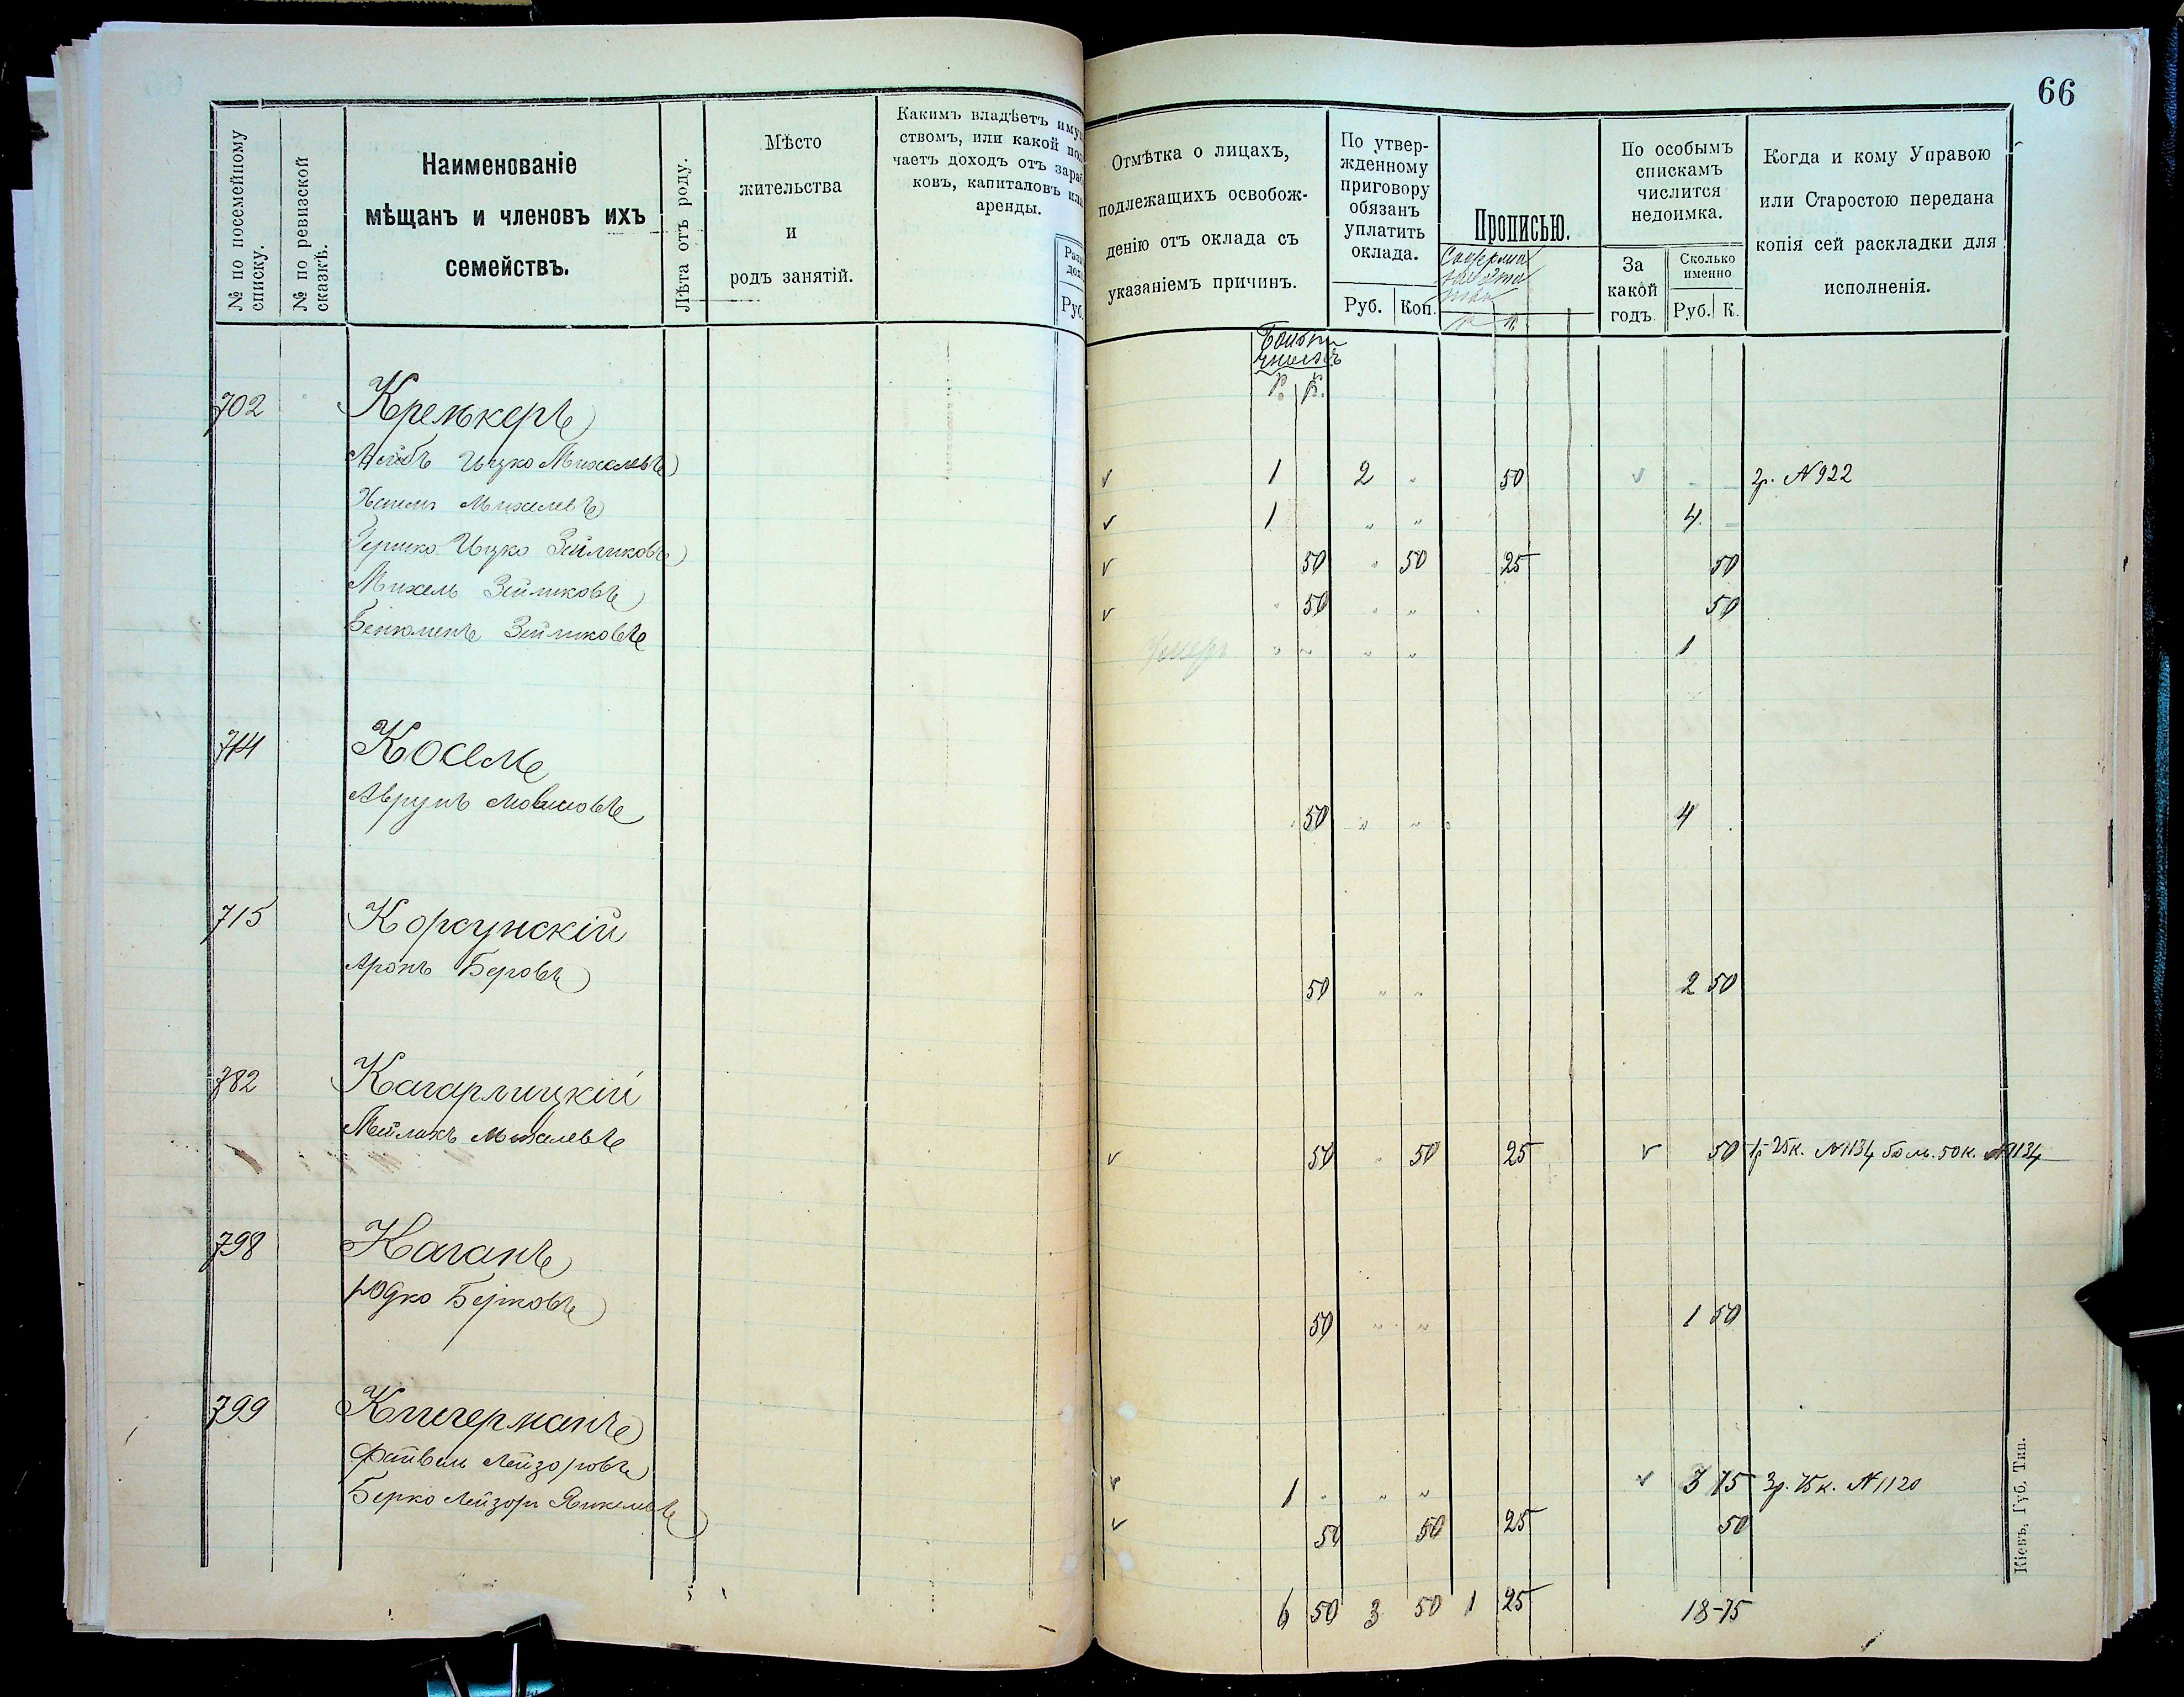 66
№ по посемейному списку.
№ по ревизской сказкѣ.
Наименованіе
мѣщанъ и членовъ ихъ
семействъ.
Лѣта отъ роду.
Мѣсто
жительства
и
родъ занятій.
Какимъ владѣетъ
ствомъ, или какой
чаетъ доходъ отъ
ковъ, капиталовъ или
аренды.
Руб.
Отмѣтка о лицахъ,
подлежащихъ освобож-
денію отъ оклада съ
указаніемъ причинъ.
По утвер-
жденному
приговору
обязанъ
уплатить
оклада.
Руб. Коп.
Прописью.
По особымъ
спискамъ
числится
недоимка.
За
какой
годъ.
Сколько
именно
Руб. К.
Когда и кому Управою
или Старостою передана
копія сей раскладки для
исполненія.
Р. К.
702 Кремкеръ
Лейбъ Ицко Михелевъ 1 2 " 50 2р. N 922
Михелевъ 1 " " 4
Гершко Ицко Зейликовъ 50 " 50 25 50
Михель Зейликовъ " 50 " " 50
Бенюменъ Зейликовъ Умеръ " " " " 1
714 Косой
Аврумъ Мовшовъ 50 " " 4
715 Корсунскій
Аронъ Беровъ 50 " " 2 50
782 Кагарлицкій
Мейлахъ Михелевъ 50 " 50 25 50 1р 25к. N1134 бол. 50к. N1134
798 Каганъ
Юдко Берковъ 50 " " 1 50
799 Кигерманъ
Файвель Лейзоровъ 1 " " " 3 75 3р. 75к. N 1120
Берко Лейзоръ Янкелевъ 50 50 25 50
6 50 3 50 1 25 18-75
Кіевъ, Губ. Тип.